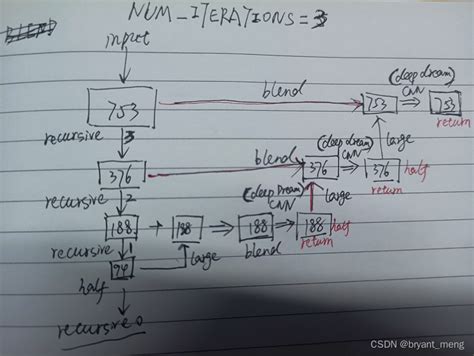 BLEND NUM_ITERATIONS = 3
input
(deep dream)
blend CNN
753 753 753
recursive 3 return
(deep dream) large
blend CNN
376 376 376 half
recursive 2 (deep Dream) return
CNN large
188 188 188 188 half
recursive 1 large blend return
94
half
recursive 0
CSDN @bryant_meng